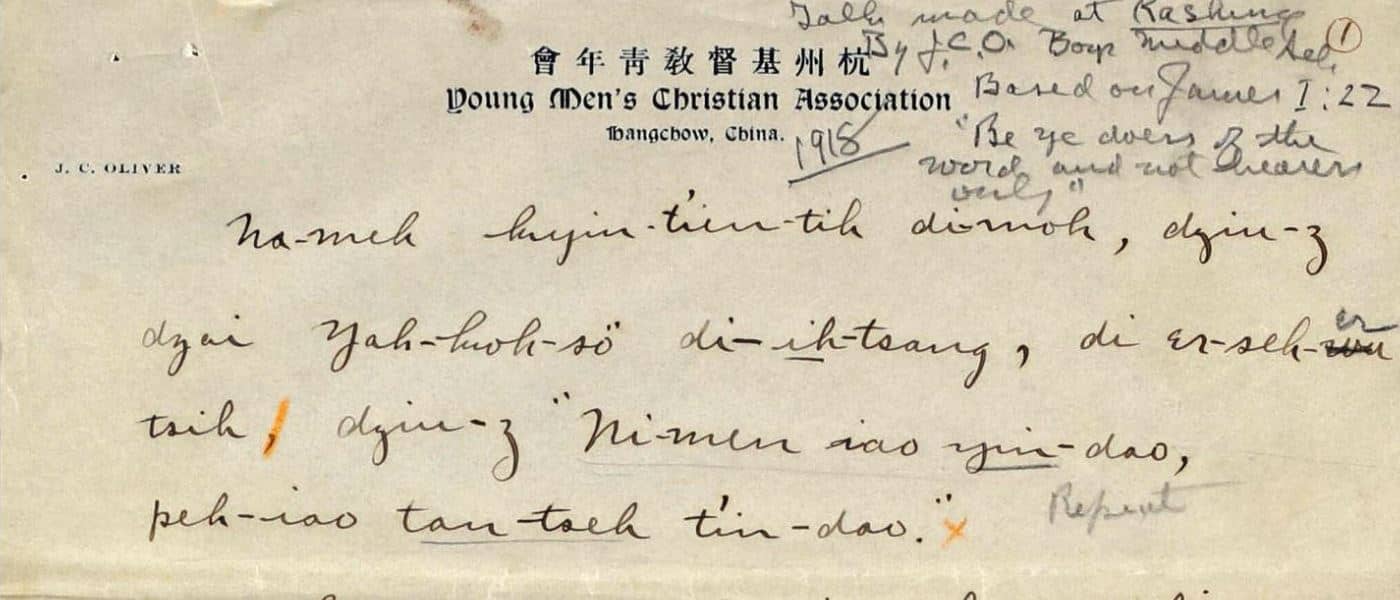 Talk made at Kashing
By J.C.O. Boys Middle Sch. 1
會年青教督基州杭
Young Men's Christian Association
Based on James I:22
Hangchow, China.
1918
"Be ye doers of the
word and not hearers
only"
J. C. OLIVER
Na-meh kyin-t'ien-tih di-moh, dziu-z
dzai Yah-kwoh-sö di-ih-tsang, di er-seh-er
tsih, dziu-z "Ni-men iao yin-dao,
peh-iao tan-tseh t'in-dao." x Repeat